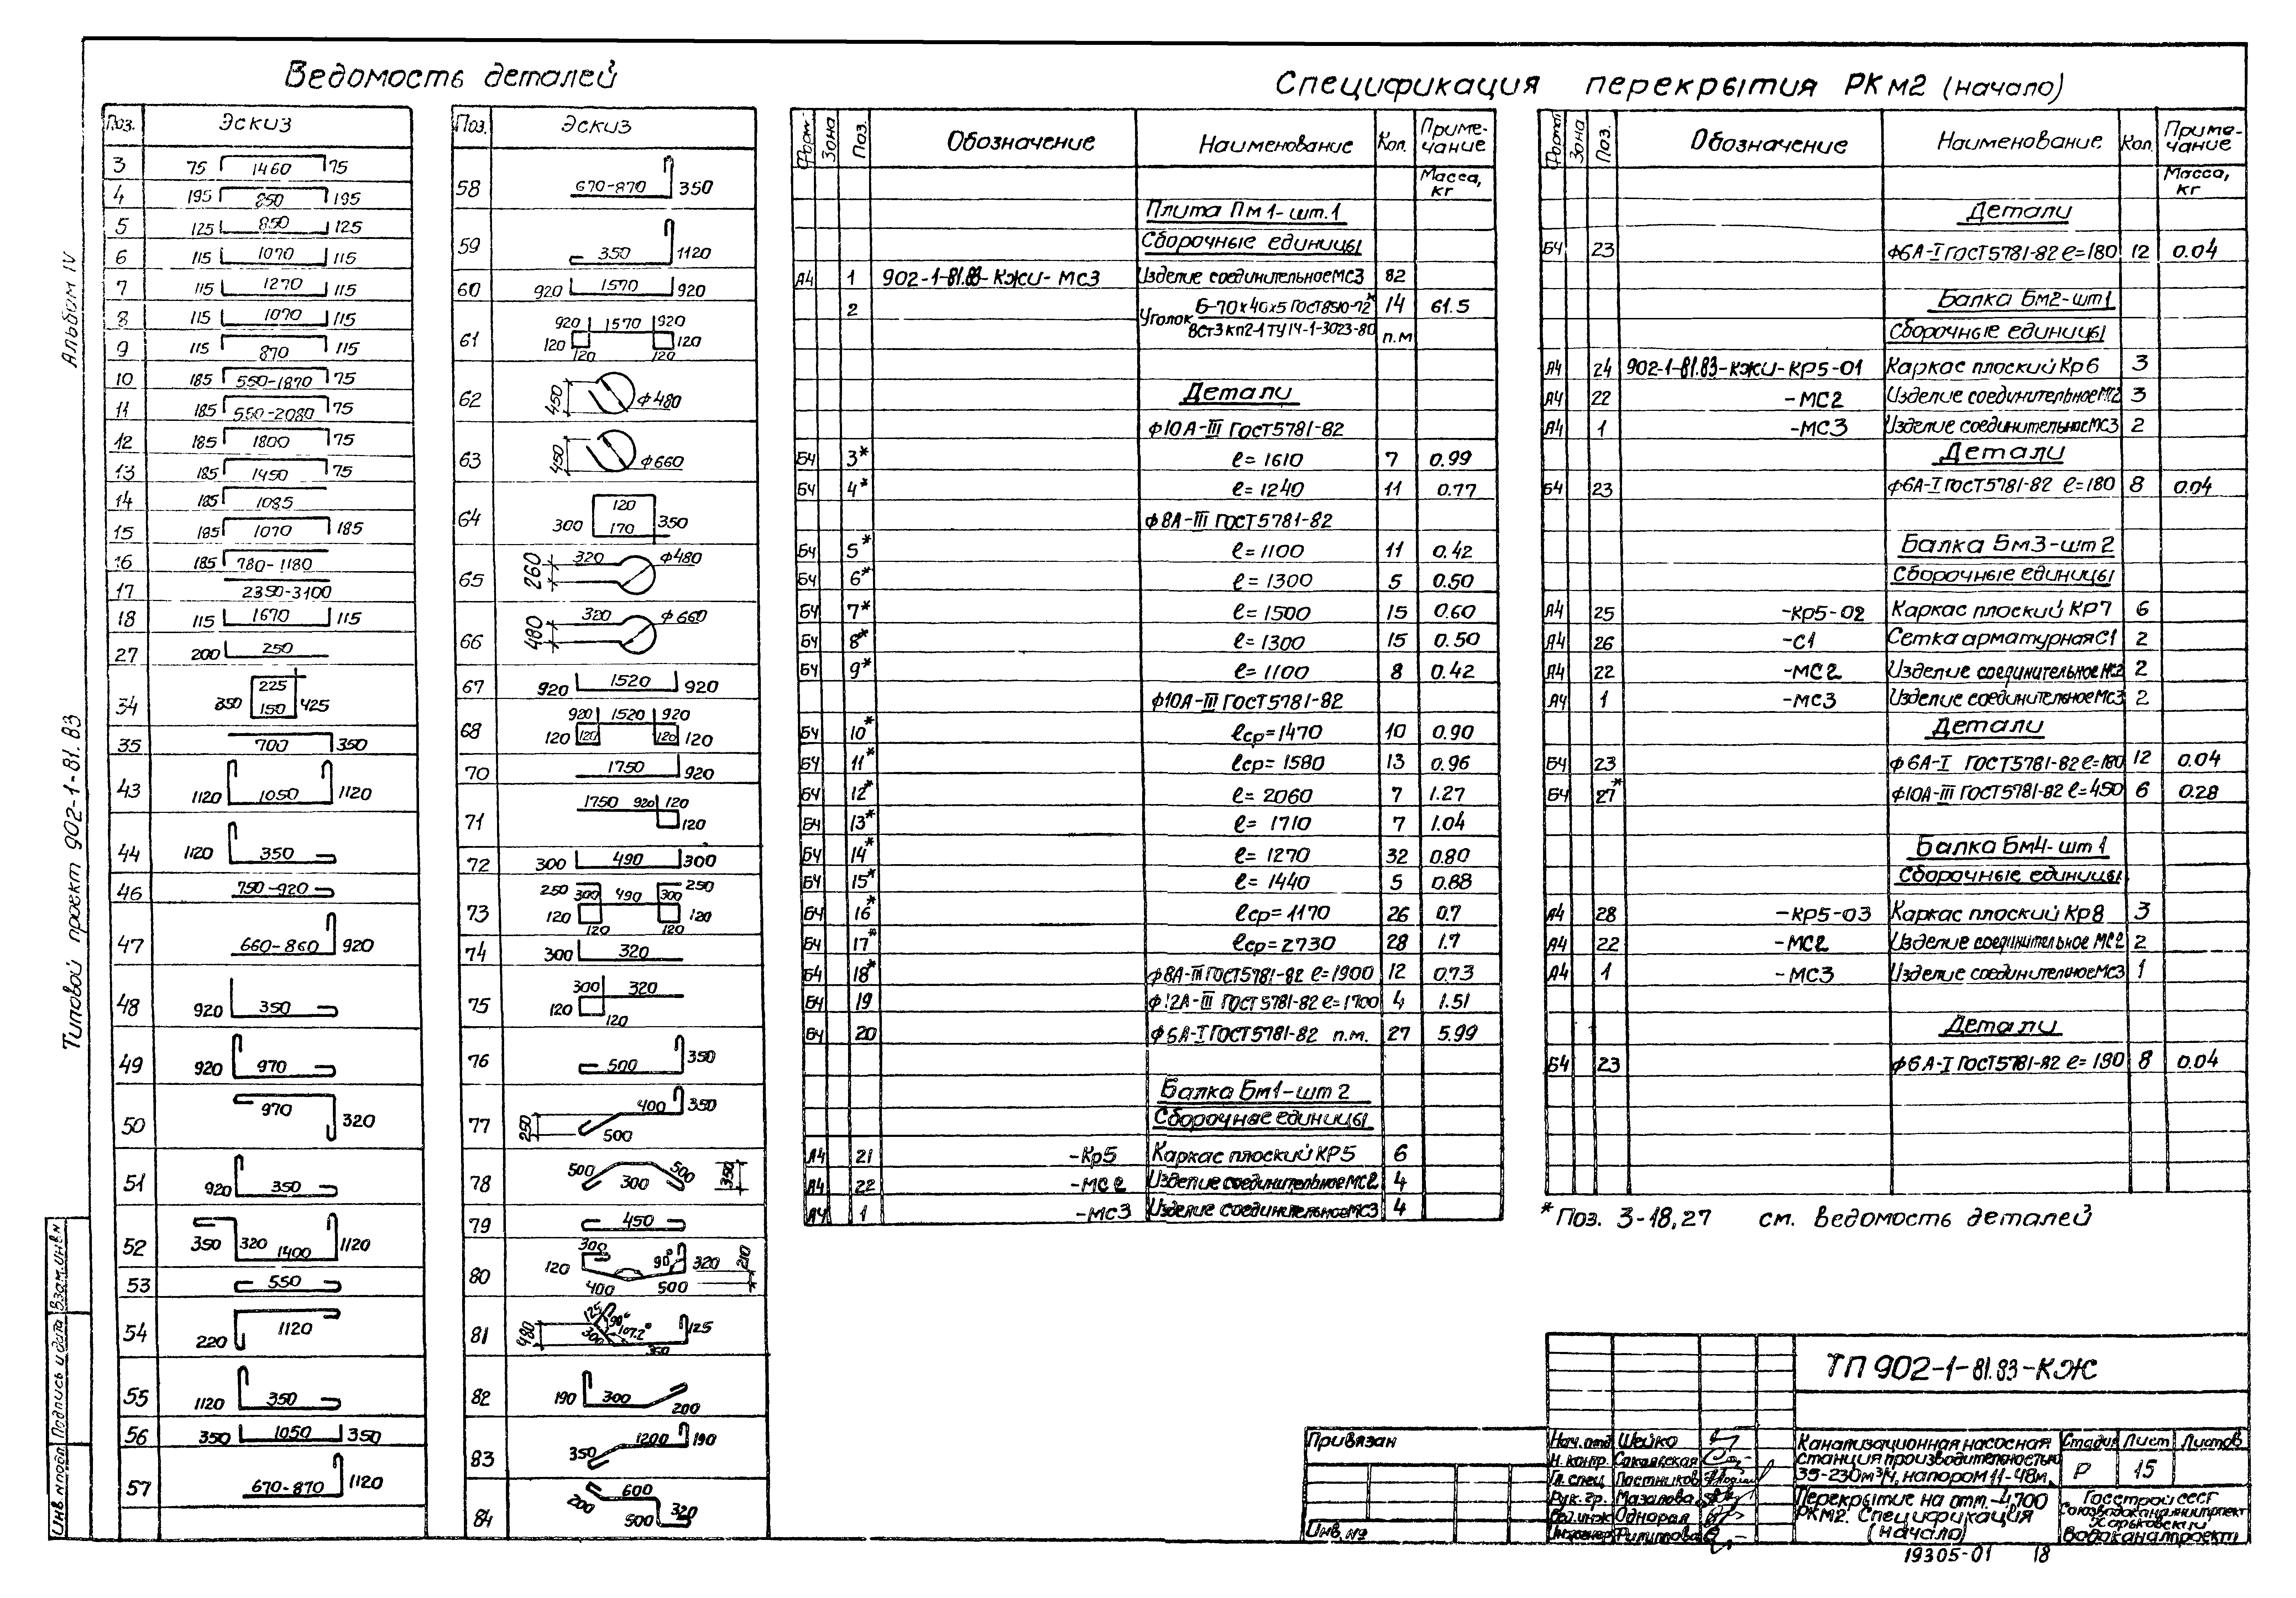 Ведомость деталей
Поз. Эскиз
3 75 1460 75
4 195 850 195
5 125 850 125
6 115 1070 115
7 115 1270 115
8 115 1070 115
9 115 870 115
10 185 550-1870 75
11 185 550-2080 75
12 185 1800 75
13 185 1450 75
14 185 1085
15 185 1070 185
16 185 780-1180
17 2350-3100
18 115 1670 115
27 200 250
34 350 225 150 425
35 700 350
43 1120 1050 1120
44 1120 350
46 750-920
47 660-860 920
48 920 350
49 920 970
50 970 320
51 920 350
52 350 320 1400 1120
53 550
54 220 1120
55 1120 350
56 350 1050 350
57 670-870 1120
Поз. Эскиз
58 670-870 350
59 350 1120
60 920 1570 920
61 920 1570 920 120 120 120 120
62 450 ф480
63 450 ф660
64 300 120 170 350
65 260 320 ф480
66 480 320 ф660
67 920 1520 920
68 920 1520 920 120 120 120 120
70 1750 920
71 1750 920 120 120
72 300 490 300
73 250 300 490 300 250 120 120 120 120
74 300 320
75 300 320 120 120
76 500 350
77 250 400 350 500
78 500 300 500 350
79 450
80 300 120 400 90° 500 320 210
81 480 125 90° 300 107.2° 350 125
82 190 300 200
83 350 1200 190
84 200 600 500 320
Спецификация перекрытия РКм2 (начало)
Формат Зона Поз. Обозначение Наименование Кол. Примечание
Масса, кг
Плита Пм1-шт.1
Сборочные единицы
А4 1 902-1-81.83-КЖИ-МС3 Изделие соединительное МС3 82
2 Уголок Б-70х40х5 ГОСТ8510-72* 14 61.5
ВСт3кп2-1 ТУ14-1-3023-80 п.м
Детали
ф10А-III ГОСТ5781-82
БЧ 3* ℓ=1610 7 0.99
БЧ 4* ℓ=1240 11 0.77
ф8А-III ГОСТ5781-82
БЧ 5* ℓ=1100 11 0.42
БЧ 6* ℓ=1300 5 0.50
БЧ 7* ℓ=1500 15 0.60
БЧ 8* ℓ=1300 15 0.50
БЧ 9* ℓ=1100 8 0.42
ф10А-III ГОСТ5781-82
БЧ 10* ℓср=1470 10 0.90
БЧ 11* ℓср=1580 13 0.96
БЧ 12* ℓ=2060 7 1.27
БЧ 13* ℓ=1710 7 1.04
БЧ 14* ℓ=1270 32 0.80
БЧ 15* ℓ=1440 5 0.88
БЧ 16* ℓср=1170 26 0.7
БЧ 17* ℓср=2730 28 1.7
БЧ 18* ф8А-III ГОСТ5781-82 ℓ=1900 12 0.73
БЧ 19 ф12А-III ГОСТ5781-82 ℓ=1700 4 1.51
БЧ 20 ф6А-I ГОСТ5781-82 п.м. 27 5.99
Балка Бм1-шт 2
Сборочные единицы
А4 21 -Кр5 Каркас плоский КР5 6
А4 22 -МС2 Изделие соединительное МС2 4
А4 1 -МС3 Изделие соединительное МС3 4
Формат Зона Поз. Обозначение Наименование Кол. Примечание
Масса, кг
Детали
БЧ 23 ф6А-I ГОСТ5781-82 ℓ=180 12 0.04
Балка Бм2-шт1
Сборочные единицы
А4 24 902-1-81.83-КЖИ-КР5-01 Каркас плоский Кр6 3
А4 22 -МС2 Изделие соединительное МС2 3
А4 1 -МС3 Изделие соединительное МС3 2
Детали
БЧ 23 ф6А-I ГОСТ5781-82 ℓ=180 8 0.04
Балка Бм3-шт 2
Сборочные единицы
А4 25 -Кр5-02 Каркас плоский КР7 6
А4 26 -С1 Сетка арматурная С1 2
А4 22 -МС2 Изделие соединительное МС2 2
А4 1 -МС3 Изделие соединительное МС3 2
Детали
БЧ 23 ф6А-I ГОСТ5781-82 ℓ=180 12 0.04
БЧ 27* ф10А-III ГОСТ5781-82 ℓ=450 6 0.28
Балка Бм4-шт 1
Сборочные единицы
А4 28 -КР5-03 Каркас плоский Кр8 3
А4 22 -МС2 Изделие соединительное МС2 2
А4 1 -МС3 Изделие соединительное МС3 1
Детали
БЧ 23 ф6А-I ГОСТ5781-82 ℓ=180 8 0.04
*Поз. 3-18,27 см. ведомость деталей
Альбом IV
Типовой проект 902-1-81.83
Взам.инв.н
Подпись и дата
Инв.н подл
Привязан
Инв.№
ТП 902-1-81.83-КЖ
Нач.отд Шейко
Н.контр.
Гл.спец Постников
Рук.гр. Мазалова
Вед.инж Однорал
Инженер Филиппова
Канализационная насосная
станция производительностью
35-230м³/ч, напором 11-48м.
Стадия Лист Листов
Р 15
Перекрытие на отм.-4,700
РКм2. Спецификация
(начало)
Госстрой СССР
Союзводоканалниипроект
Харьковский
Водоканалпроект
19305-01 18